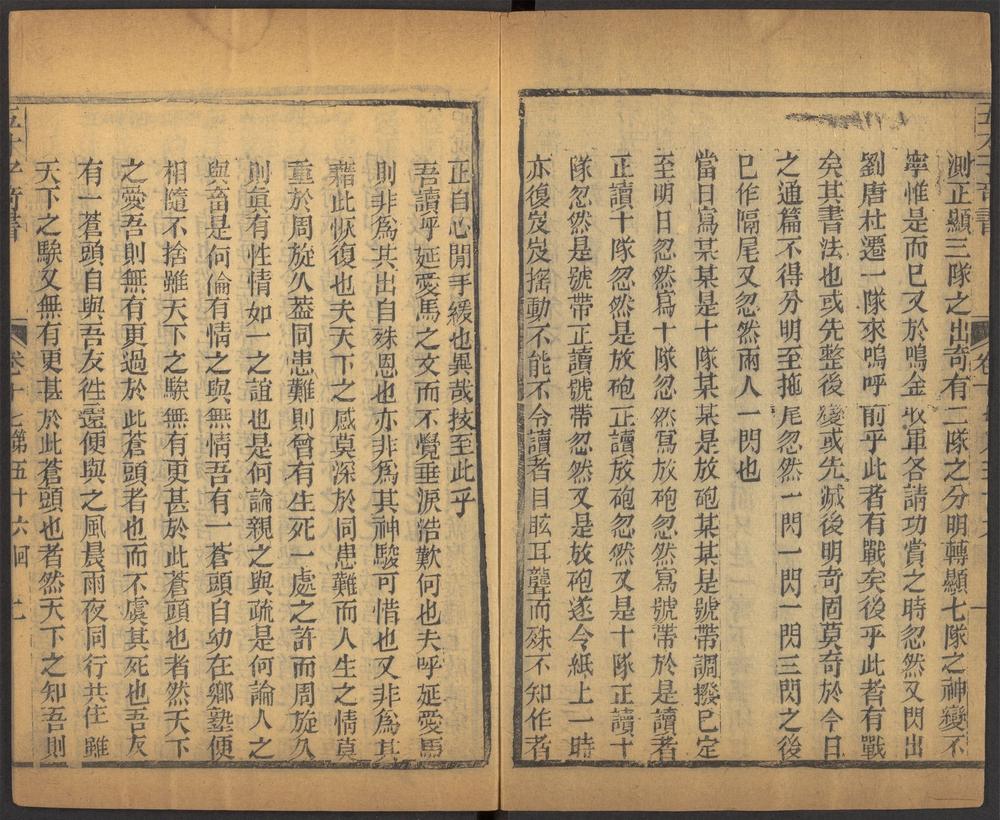 測正顯三隊之出奇有二隊之分明轉顯七隊之神變不
寧惟是而已又於鳴金收軍各請功賞之時忽然又閃出
劉唐杜遷一隊來嗚呼前乎此者有戰矣後乎此者有戰
矣其書法也或先整後變或先滅後明奇固莫奇於今日
之通篇不得分明至拖尾忽然一閃一閃一閃三閃之後
已作隔尾又忽然兩人一閃也
當日寫某某是十隊某某是放砲某某是號帶調撥已定
至明日忽然寫十隊忽然寫放砲忽然寫號帶於是讀者
正讀十隊忽然是放砲正讀放砲忽然又是十隊正讀十
隊忽然是號帶正讀號帶忽然又是放砲遂令紙上一時
亦復岌岌搖動不能不令讀者目眩耳聾而殊不知作者
正自心閒手緩也異哉技至此乎
吾讀呼延愛馬之文而不覺垂淚浩歎何也夫呼延愛馬
則非爲其出自殊恩也亦非爲其神駿可惜也又非爲其
藉此恢復也夫天下之感莫深於同患難而人生之情莫
重於周旋久葢同患難則曾有生死一處之許而周旋久
則眞有性情如一之誼也是何論親之與疏是何論人之
與畜是何論有情之與無情吾有一蒼頭自幼在鄉塾便
相隨不捨雖天下之騃無有更甚於此蒼頭也者然天下
之愛吾則無有更過於此蒼頭者也而不虞其死也吾友
有一蒼頭自與吾友徃還便與之風晨雨夜同行共住雖
天下之騃又無有更甚於此蒼頭也者然天下之知吾則
五才子奇書
卷十七第五十六回